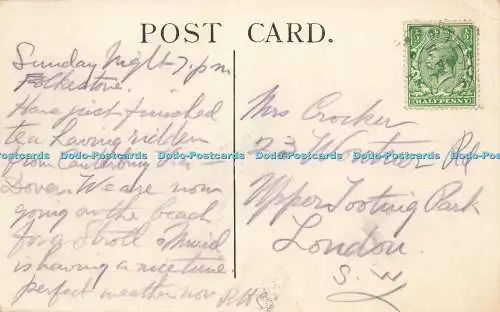 POST CARD.
HALFPENNY
Sunday Night 7. p.m.
Folkestone.
Have just finished
tea having ridden
from Canterbury via
Dover. We are now
going on the beach
for a Stroll
is having a nice time.
perfect weather now
Mrs Crocker
23 Rd
Upper Tooting Park
London.
S. W
Dodo-Postcards Dodo-Postcards Dodo-Postcards Dodo-Postcards Dodo-Postcards